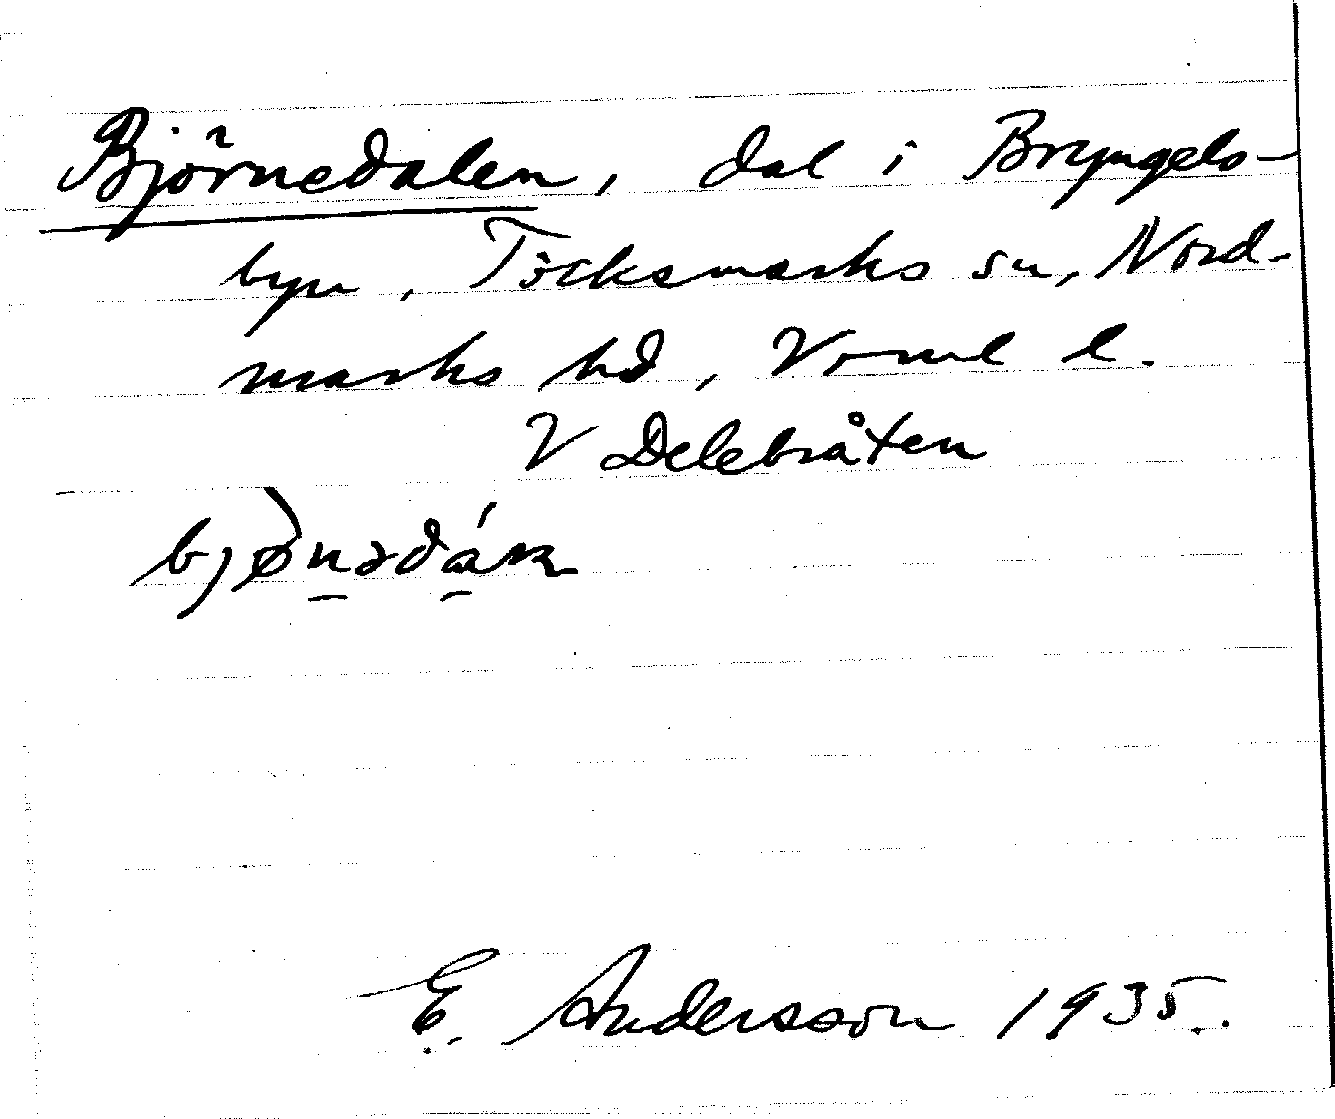 Björnedalen, dal i Bryngels-
byn, Töcksmarks sn, Nord-
marks hd, Verml l.
V Delebråten
E. Andersson 1935.